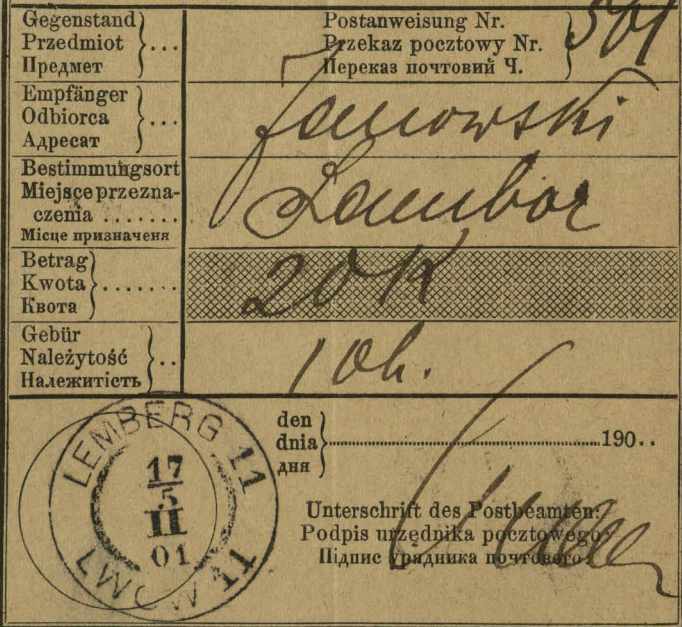 Gegenstand
Przedmiot ...
Предмет
Postanweisung Nr.
Przekaz pocztowy Nr. 501
Переказ почтовий Ч.
Empfänger
Odbiorca ...
Адресат
Janowski
Bestimmungsort
Miejsce przezna-
czenia ......
Місце призначеня
Sambor
Betrag
Kwota ......
Квота
20 K
Gebür
Należytość ..
Належитість
10h.
LEMBERG 11
17
5
II
01
LWÓW 11
den
dnia ...... 190..
дня
Unterschrift des Postbeamten:
Podpis urzędnika pocztowego:
Підпис урядника почтового: